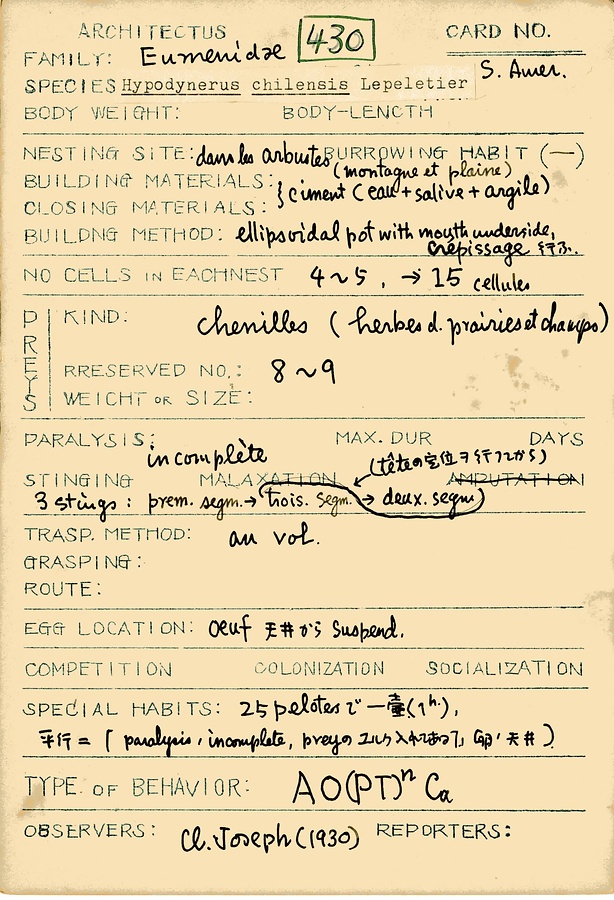 ARCHITECTUS 430 CARD NO.
FAMILY: Eumenidae S. Amer.
SPECIES Hypodynerus chilensis Lepeletier
BODY WEIGHT: BODY-LENGTH
NESTING SITE: dans les arbustes BURROWING HABIT (—)
(montagne et plaine)
BUILDING MATERIALS:
CLOSING MATERIALS: } ciment (eau + salive + argile)
BUILDNG METHOD: ellipsoidal pot with mouth underside,
crépissage 行ふ.
NO CELLS IN EACHNEST 4~5, → 15 cellules
PREYS KIND: chenilles (herbes d. prairies et champs)
RRESERVED NO.: 8~9
WEIGHT OR SIZE:
PARALYSIS: incomplète MAX. DUR DAYS
(têteの定位ヲ行フカラ)
STINGING MALAXATION AMPUTATION
3 stings: prem. segm. → trois. segm. → deux. segm)
TRASP. METHOD: au vol.
GRASPING:
ROUTE:
EGG LOCATION: Oeuf 天井から suspend.
COMPETITION COLONIZATION SOCIALIZATION
SPECIAL HABITS: 25 pelotes で一壷(1h.),
平行 = [ paralysis, incomplete, preyの 入れ 卵, 天井 )
TYPE OF BEHAVIOR: AO(PT)ⁿ Ca
OBSERVERS: Cl. Joseph (1930) REPORTERS: